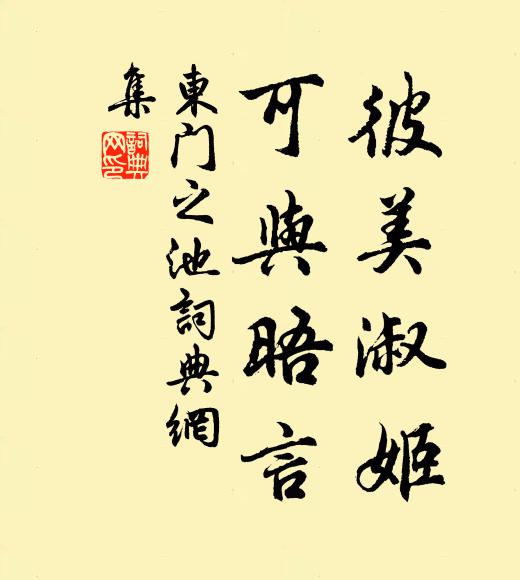 彼美淑姬
可與晤言
東门之池詞典網
集
詞典
网印